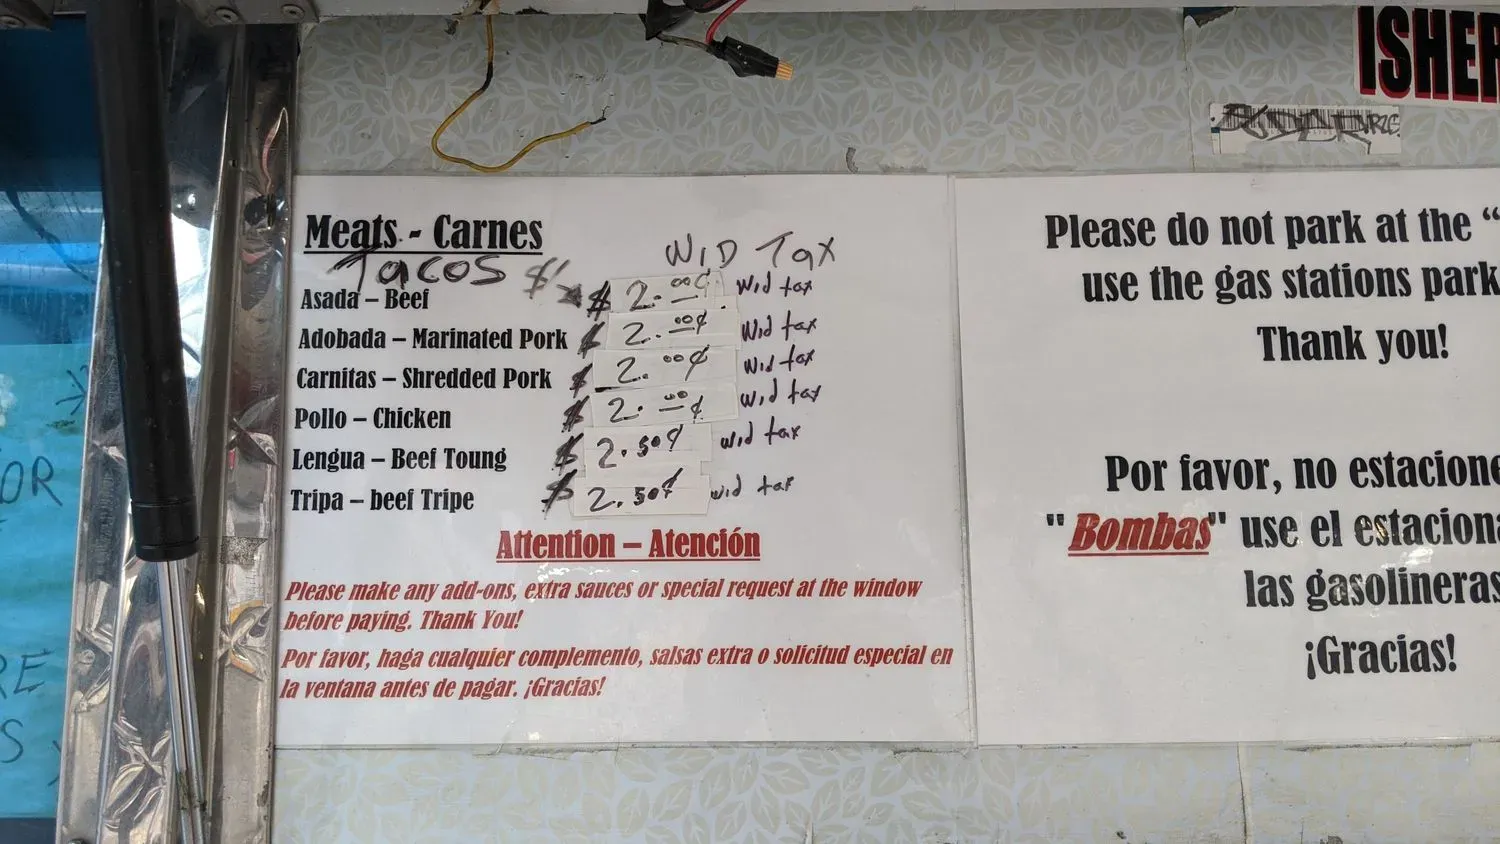 ISHER
Meats - Carnes
Tacos
WID Tax
Asada – Beef $ 2.00¢ wid tax
Adobada – Marinated Pork $ 2.00¢ wid tax
Carnitas – Shredded Pork $ 2.00¢ wid tax
Pollo – Chicken $ 2.00¢ wid tax
Lengua – Beef Toung $ 2.50¢ wid tax
Tripa – beef Tripe $ 2.50¢ wid tax
Attention – Atención
Please make any add-ons, extra sauces or special request at the window
before paying. Thank You!
Por favor, haga cualquier complemento, salsas extra o solicitud especial en
la ventana antes de pagar. ¡Gracias!
Please do not park at the “
use the gas stations park
Thank you!
Por favor, no estacione
"Bombas" use el estaciona
las gasolineras
¡Gracias!
OR
RE
S